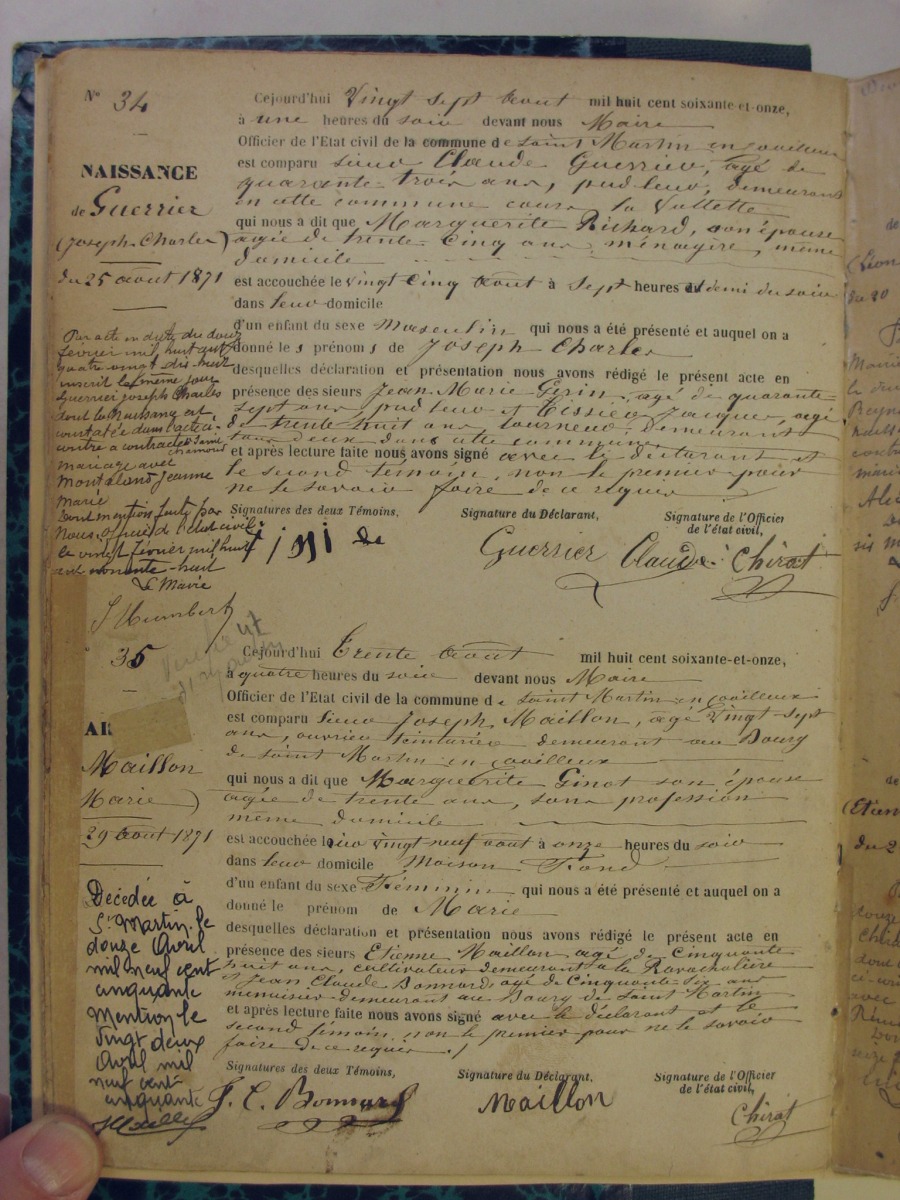 N° 34
NAISSANCE
de Guerrier
(Joseph Charles)
du 25 août 1871
Par acte en date du douze
février mil huit cent
quatre vingt dix huit
inscrit le même jour
Guerrier Joseph Charles
dont la naissance est
constatée dans l'acte ci-
contre a contracté à Saint
Chamond
mariage avec
Montaland Jeanne
Marie
Dont mention faite par
Nous, officier de l'état civil
le vingt février mil huit
cent nonante-huit
Le Maire
Cejourd'hui Vingt sept Aout mil huit cent soixante-et-onze,
à une heures du soir devant nous Maire
Officier de l'Etat civil de la commune de Saint Martin en Coailleux
est comparu sieur Claude Guerrier, agé de
quarante-trois ans, pudleur, demeurant
en cette commune cours la Vallette
qui nous a dit que Marguerite Richard, son épouse
agée de trente-cinq ans ménagère, même
domicile
est accouchée le vingt cinq Août à Sept heures et demi du soir
dans leur domicile
d'un enfant du sexe Masculin qui nous a été présenté et auquel on a
donné les prénoms de Joseph Charles
desquelles déclaration et présentation nous avons rédigé le présent acte en
présence des sieurs Jean Marie Gérin, agé de quarante
sept ans, pudleur et Tissier Jacques, agé
de trente huit ans, tourneur, demeurant
tous deux dans cette commune
et après lecture faite nous avons signé avec le déclarant et
le second témoin, non le premier pour
ne le savoir faire de ce requis
Signatures des deux Témoins, Signature du Déclarant, Signature de l'Officier
de l'état civil,
Guerrier Claude Chirat
35
Maillon
Marie)
29 Aout 1871
Décédée à
St Martin le
douze Avril
mil neuf cent
cinquante
Mention le
Vingt deux
Avril mil
neuf cent
cinquante
Cejourd'hui Trente Aout mil huit cent soixante-et-onze,
à quatre heures du soir devant nous Maire
Officier de l'Etat civil de la commune de Saint Martin en Coailleux
est comparu Sieur Joseph Maillon, agé Vingt-sept
ans, ouvrier teinturier demeurant au Bourg
de Saint Martin en Coailleux
qui nous a dit que Marguerite Ginot son épouse
agée de trente ans, sans profession
même domicile
est accouchée vingt neuf Aout à onze heures du soir
dans leur domicile Maison Fond
d'un enfant du sexe Féminin qui nous a été présenté et auquel on a
donné le prénom de Marie
desquelles déclaration et présentation nous avons rédigé le présent acte en
présence des sieurs Etienne Maillon agé de Cinquante
huit ans, cultivateur demeurant à la Ravachalière
et Jean Claude Bonnard agé de Cinquante-six ans
menuisier demeurant au Bourg de Saint Martin
et après lecture faite nous avons signé avec le déclarant et le
second témoin non le premier pour ne le savoir
faire de ce requis ./
Signatures des deux Témoins, Signature du Déclarant, Signature de l'Officier
de l'état civil,
J. C. Bonnard Maillon Chirat